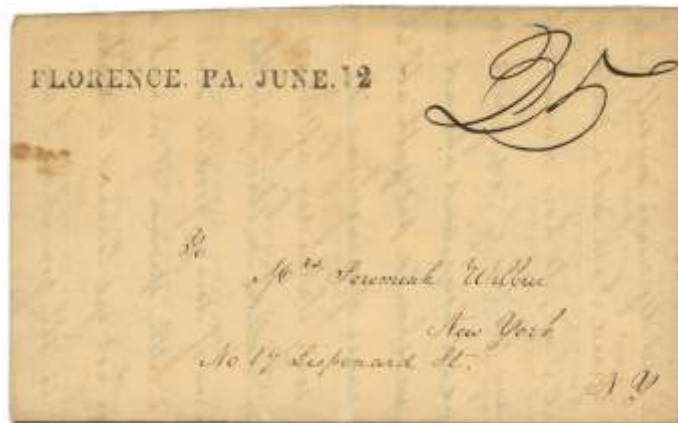 FLORENCE. PA. JUNE. 12
25
To
Mrs. Jeremiah Wilbur
New York
No. 19 Lispenard St.
N Y